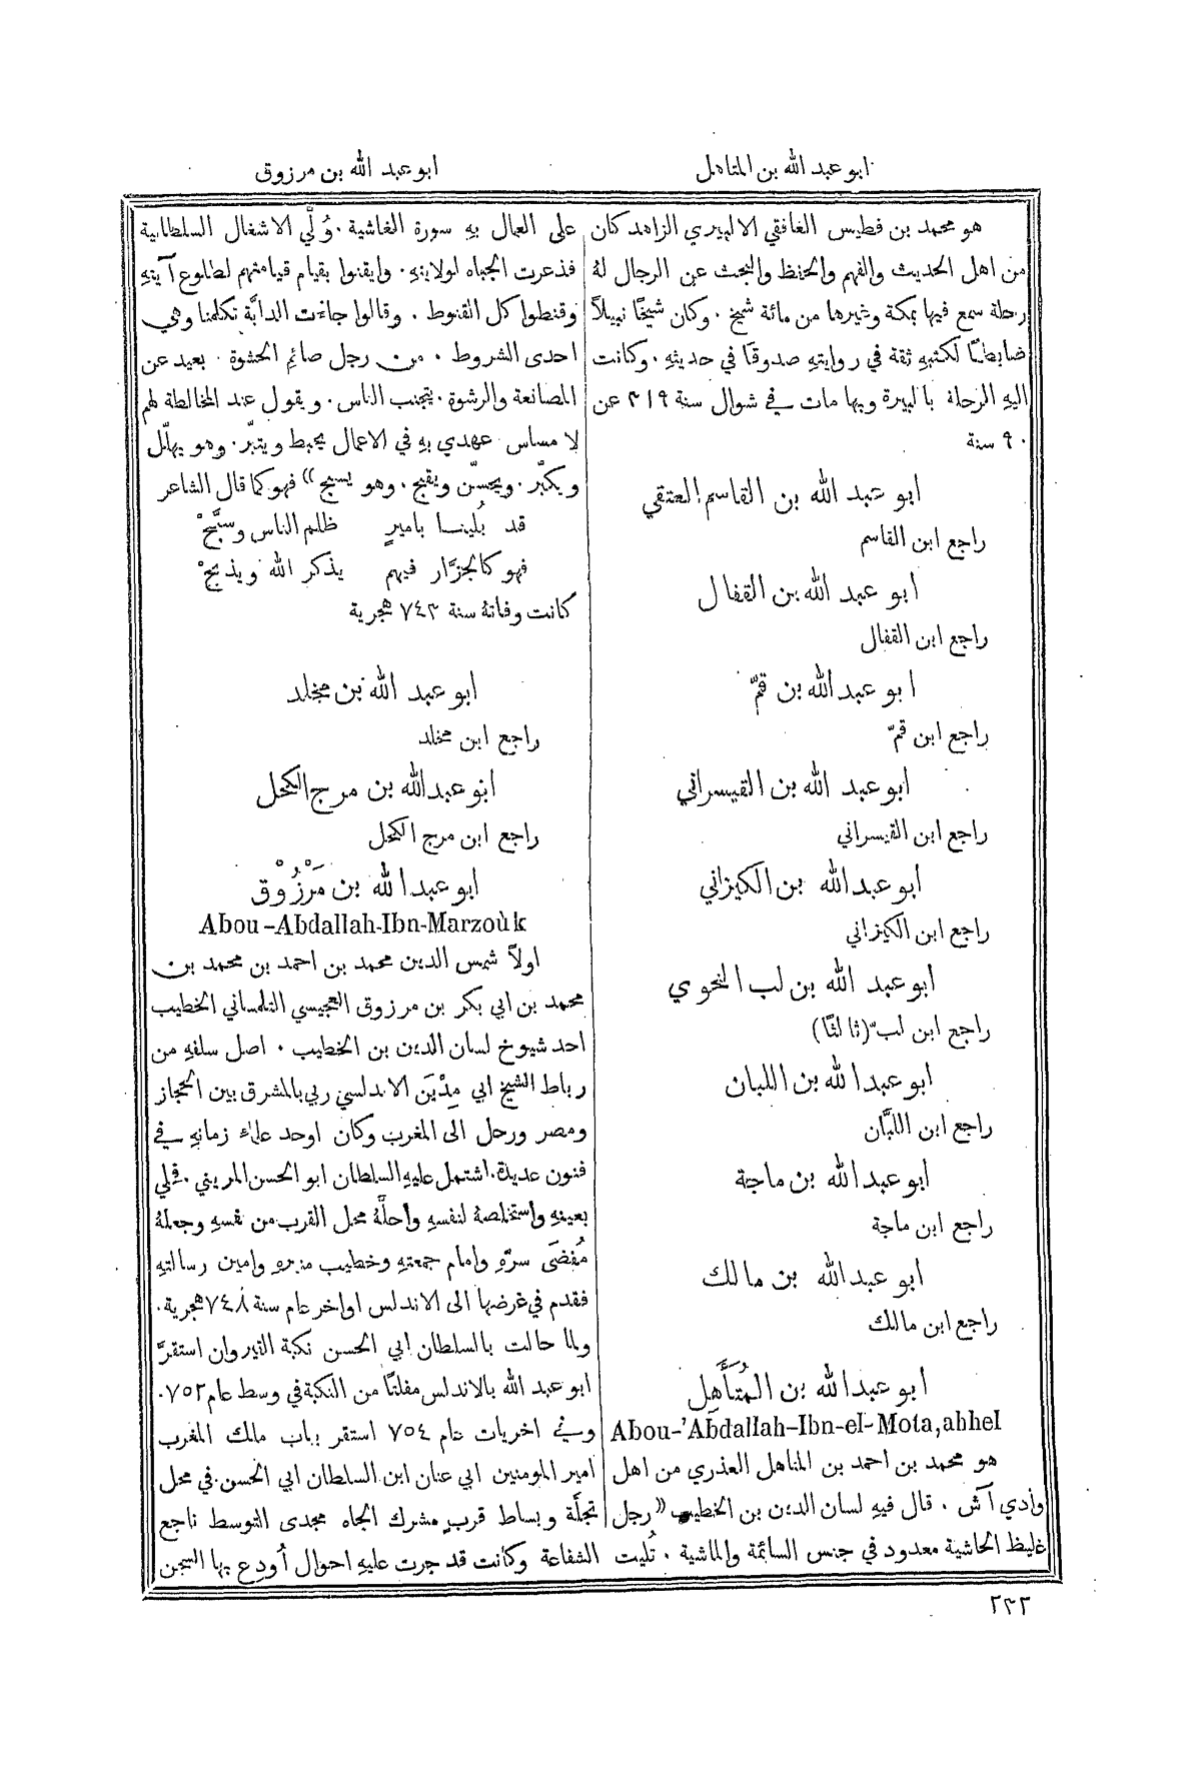 ابو عبد الله بن المتاهل
ابو عبد الله بن مرزوق
هو محمد بن فطيس الغافقي الالبيري الزاهد كان
من اهل الحديث والفهم والحفظ والبحث عن الرجال لهُ
رحلة سمع فيها بمكة وغيرها من مائة شيخ . وكان شيخًا نبيلاً
ضابطًا لكتبهِ ثقة في روايتهِ صدوقًا في حديثهِ . وكانت
اليهِ الرحلة بالبيرة وبها مات في شوال سنة ٣١٩ عن
٩٠ سنة
ابو عبد الله بن القاسم العتقي
راجع ابن القاسم
ابو عبد الله بن القفال
راجع ابن القفال
ابو عبد الله بن قمّ
راجع ابن قمّ
ابو عبد الله بن القيسراني
راجع ابن القيسراني
ابو عبد الله بن الكيزاني
راجع ابن الكيزاني
ابو عبد الله بن لب النحوي
راجع ابن لبّ (ثالثًا)
ابو عبد الله بن اللبان
راجع ابن اللبَّان
ابو عبد الله بن ماجة
راجع ابن ماجة
ابو عبد الله بن مالك
راجع ابن مالك
ابو عبد الله بن المُتَأَهِل
Abou-'Abdallah-Ibn-el-Mota,ahhel
هو محمد بن احمد بن المتاهل العذري من اهل
وادي آش . قال فيهِ لسان الدين بن الخطيب «رجل
غليظ الحاشية معدود في جنس السائمة والماشية . تُليت
على العمال بهِ سورة الغاشية . وُلّي الاشغال السلطانية
فذعرت الجباه لولايتهِ . وايقنوا بقيام قيامتهم لطلوع آيتهِ
وقنطوا كل القنوط . وقالوا جاءت الدابَّة تكلمنا وهي
احدى الشروط . من رجل صائم الحشوة . بعيد عن
المصانعة والرشوة . يتجنب الناس . ويقول عند المخالطة لهم
لا مساس عهدي بهِ في الاعمال يحبط ويتبّر . وهو يهلّل
ويكبّر . ويحسّن ويقبح . وهو يسبح» فهو كما قال الشاعر
قد بُلينا باميرٍ ظلم الناس وسبَّحْ
فهو كالجزَّار فيهم يذكر الله ويذبحْ
كانت وفاتهُ سنة ٧٤٣ هجرية
ابو عبد الله بن مخلد
راجع ابن مخلد
ابو عبد الله بن مرج الكحل
راجع ابن مرج الكحل
ابو عبد الله بن مَرْزُوْق
Abou-Abdallah-Ibn-Marzoùk
اولاً شمس الدين محمد بن احمد بن محمد بن
محمد بن ابي بكر بن مرزوق العجيسي التلمساني الخطيب
احد شيوخ لسان الدين بن الخطيب . اصل سلفهِ من
رباط الشيخ ابي مِدْيَن الاندلسي ربي بالمشرق بين الحجاز
ومصر ورحل الى المغرب وكان اوحد علماء زمانهِ في
فنون عديدة . اشتمل عليهِ السلطان ابو الحسن المريني . فلي
بعينهِ واستخلصهُ لنفسهِ واحلَّهُ محل القرب من نفسهِ وجعلهُ
مُفضَى سرّهِ وامام جمعتهِ وخطيب منبرهِ وامين رسالتهِ
فقدم في غرضها الى الاندلس اواخر عام سنة ٧٤٨ هجرية .
ولما حالت بالسلطان ابي الحسن نكبة القيروان استقرَّ
ابو عبد الله بالاندلس مفلتًا من النكبة في وسط عام ٧٥٢ .
وفي اخريات عام ٧٥٤ استقر بباب مالك المغرب
امير المومنين ابي عنان ابن السلطان ابي الحسن . في محل
تجلَّة وبساط قربٍ مشرك الجاه مجدى التوسط ناجع
الشفاعة وكانت قد جرت عليهِ احوال أُودع بها السجن
٢٣٢